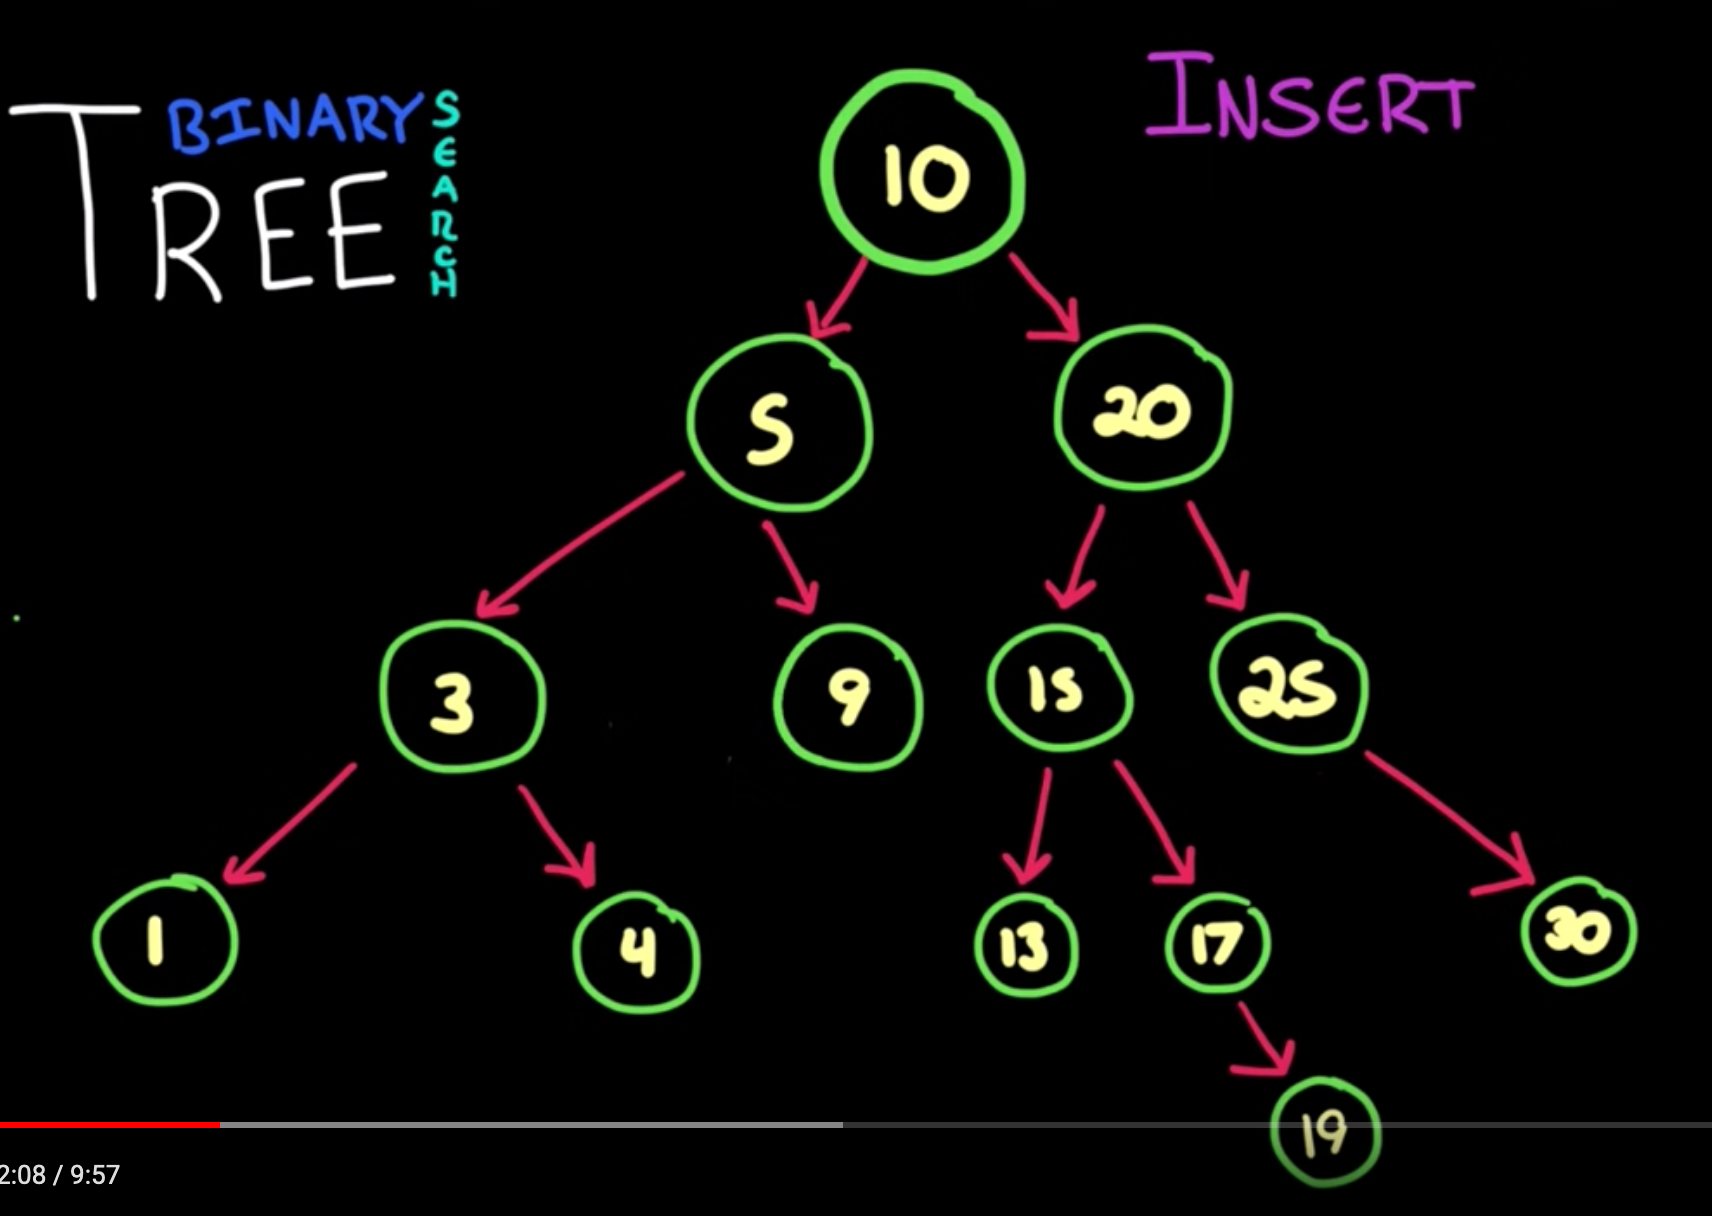 BINARY
TREE
SEARCH
INSERT
10
5
20
3
9
15
25
1
4
13
17
30
19
2:08 / 9:57